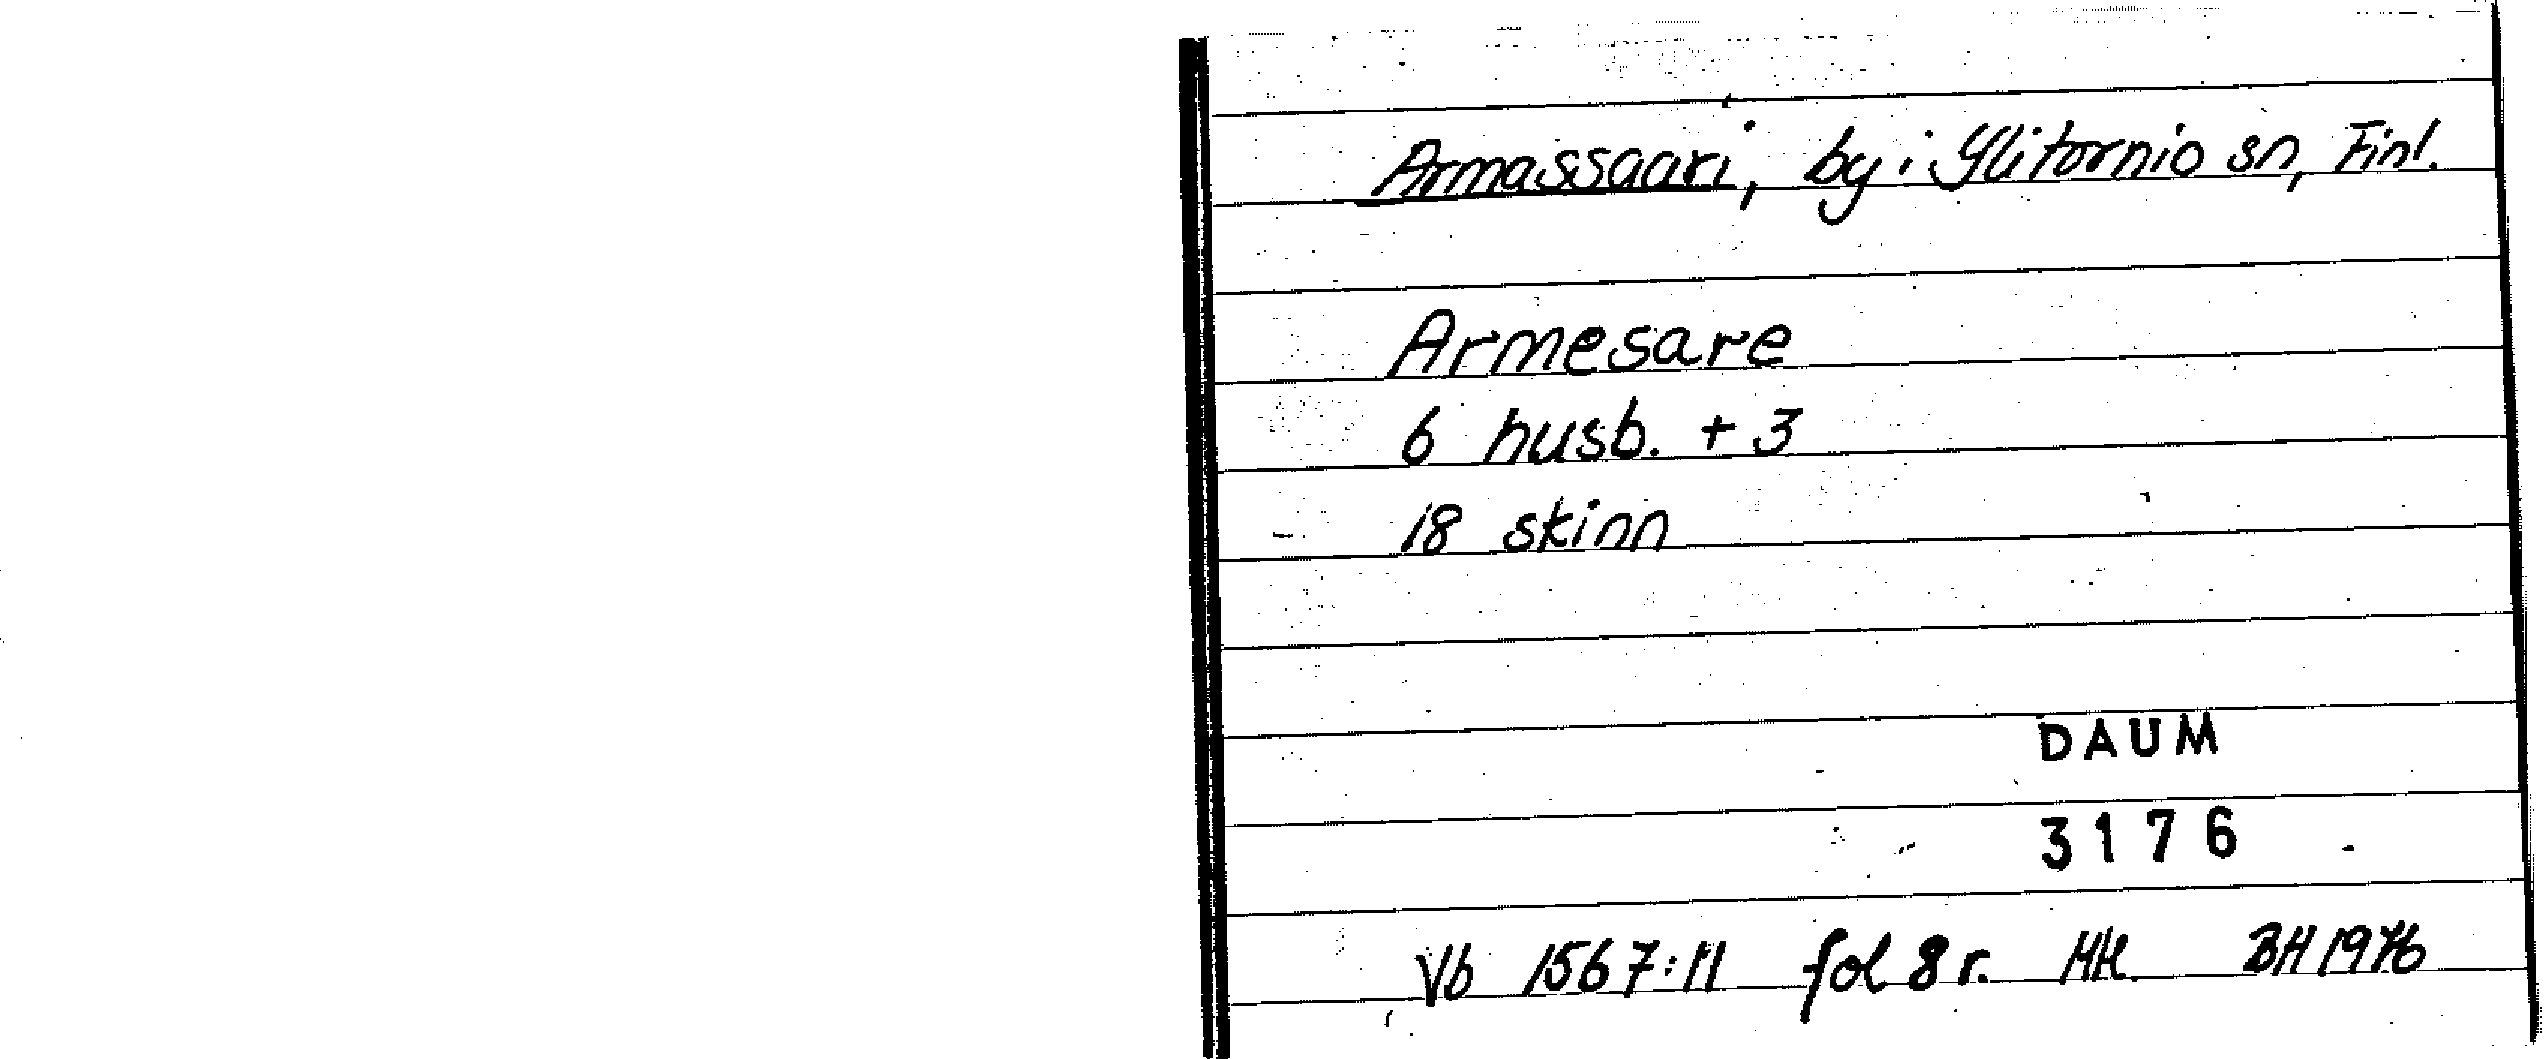 Armassaari, by i Ylitornio sn, Finl.
Armesare
6 husb. + 3
18 skinn
DAUM
3176
Vb 1567:11 fol 8 r. HH BH 1976